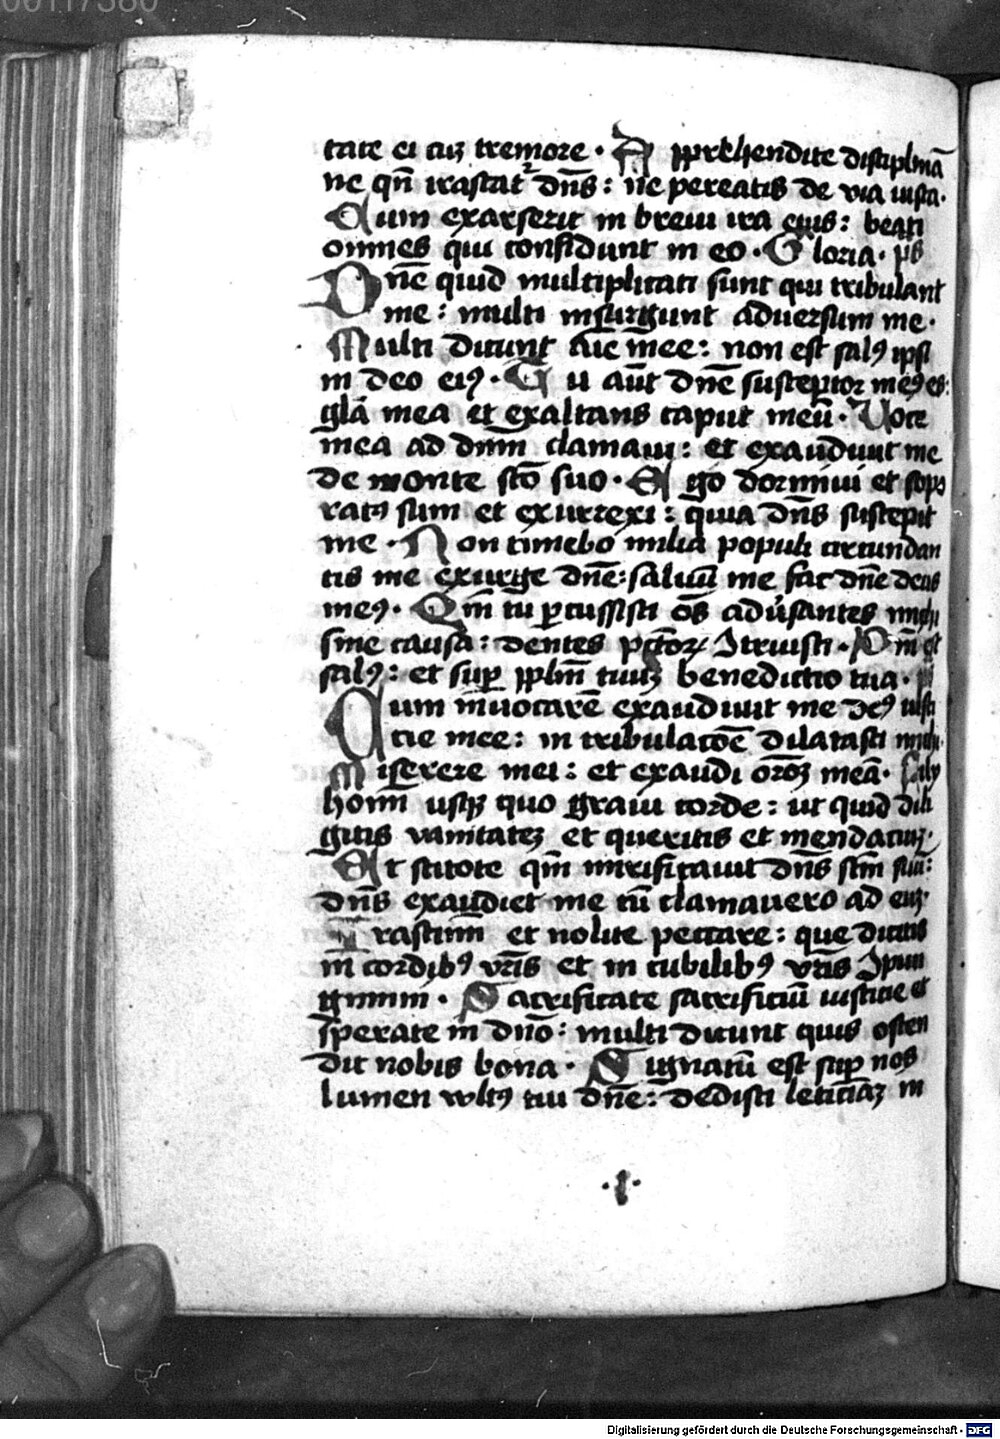 00117380
tate ei cuꝫ tremore · Apprehendite disciplinā
ne qn̄ irascat᷑ dn̄s : ne pereatis de via iusta ·
Cum exarserit in breui ira eius : beati
omnes qui confidunt in eo · Gloria · ps
Dn̄e quid multiplicati sunt qui tribulant
me : multi insurgunt aduersum me ·
Multi dicunt aīe mee : non est salꝰ ipsi
in deo eiꝰ · Tu aūt dn̄e susceptor meꝰ es :
gl̄a mea et exaltans caput meū · Uoce
mea ad dn̄m clamaui : et exaudiuit me
de monte scō suo · Ego dormiui et sopo
ratꝰ sum et exurrexi : quia dn̄s suscepit
me · Non timebo milia populi circundan
tis me exurge dn̄e : saluū me fac dn̄e deus
meꝰ · Qm̄ tu ꝑcussisti oēs adūsantes michi
sine causa : dentes pctōꝝ ꝯtriuisti · Dn̄i est
salꝰ : et suꝑ pplm̄ tuuꝫ benedictio tua · ps
Cum inuocarē exaudiuit me deꝰ iusti
cie mee : in tribulacōe dilatasti michi ·
Miserere mei : et exaudi orōꝫ meā · Filij
hoīm usqꝫ quo graui corde : ut quid dili
gitis vanitateꝫ et queritis et mendaciuꝫ ·
Et scitote qm̄ mirificauit dn̄s scm̄ suū :
dn̄s exaudiet me cū clamauero ad euꝫ ·
Irascimī et nolite peccare : que dicitis
in cordibꝰ vr̄is et in cubilibꝰ vr̄is ꝯpun
gimini · Sacrificate sacrificiū iusticie et
sperate in dn̄o : multi dicunt quis osten
dit nobis bona · Signatū est suꝑ nos
lumen vultꝰ tui dn̄e : dedisti leticiaꝫ in
· 1 ·
Digitalisierung gefördert durch die Deutsche Forschungsgemeinschaft - DFG